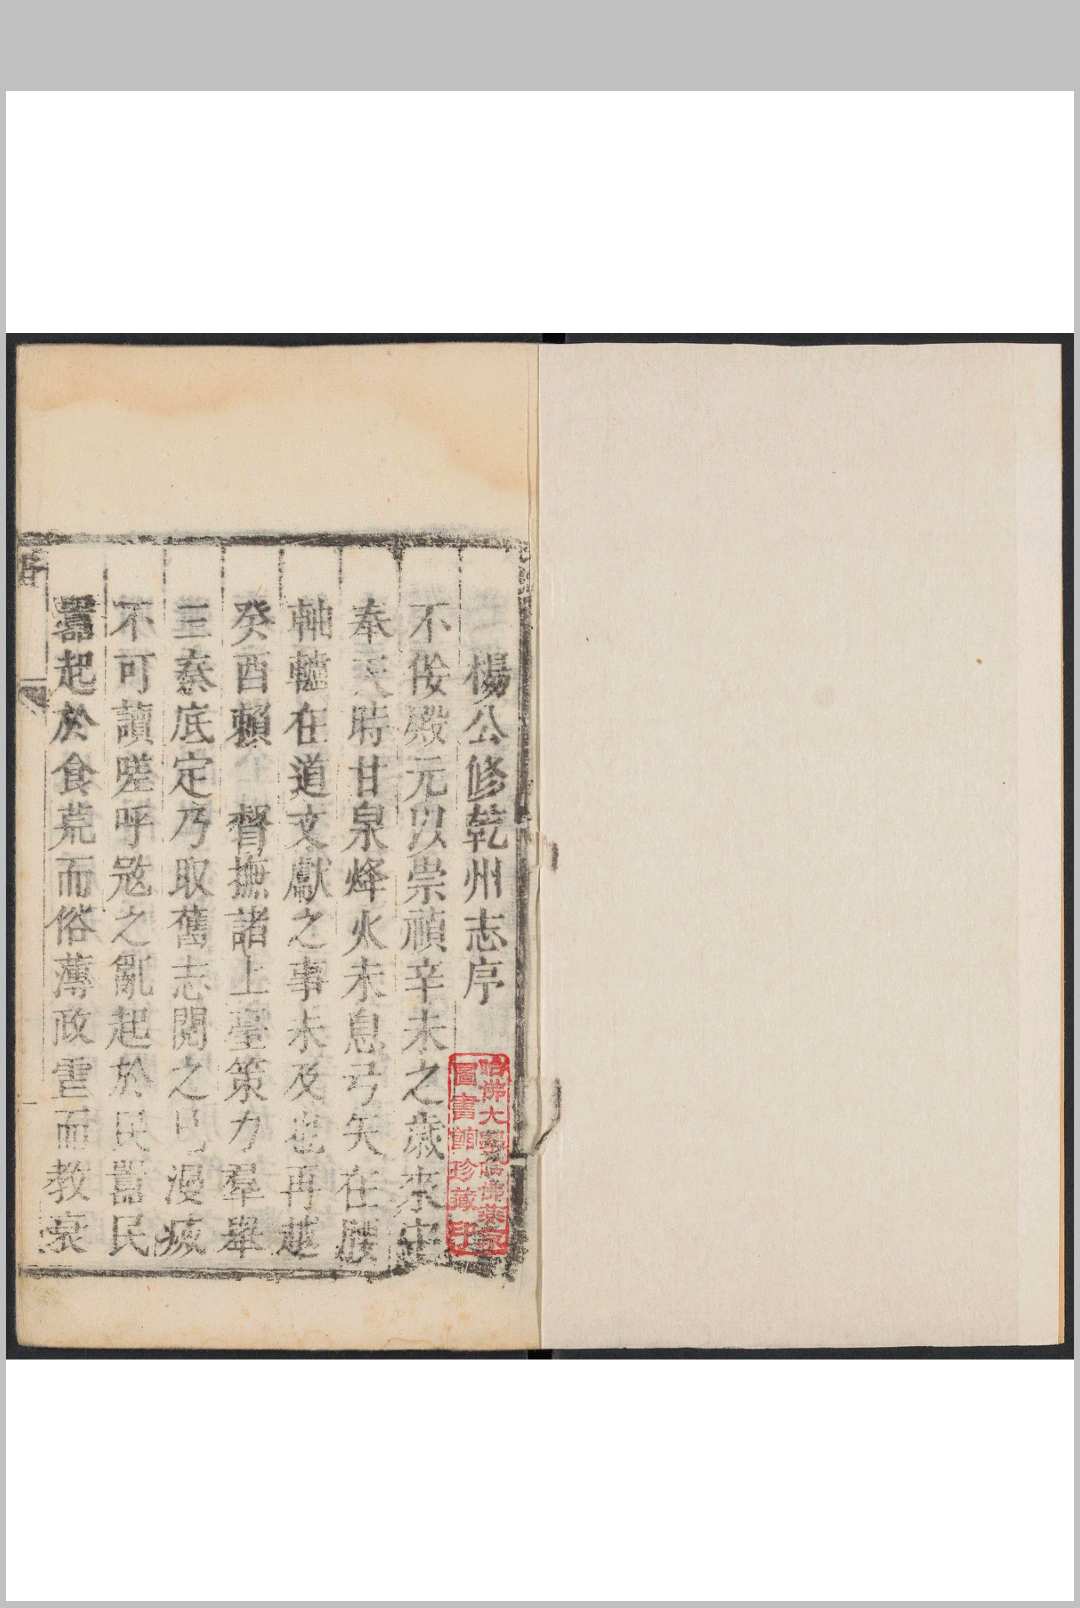 楊公修乾州志序
不佞殿元以崇禎辛未之歲來守
奉天時甘泉烽火未息弓矢在腰
軸轤在道文獻之事未及也再越
癸酉賴 督撫諸上臺策力羣舉
三秦底定乃取舊志閱之已漫漶
不可讀嗟呼寇之亂起於民嚚民
嚚起於食荒而俗薄政雹而教衰
哈佛大學哈佛燕京
圖書館珍藏印